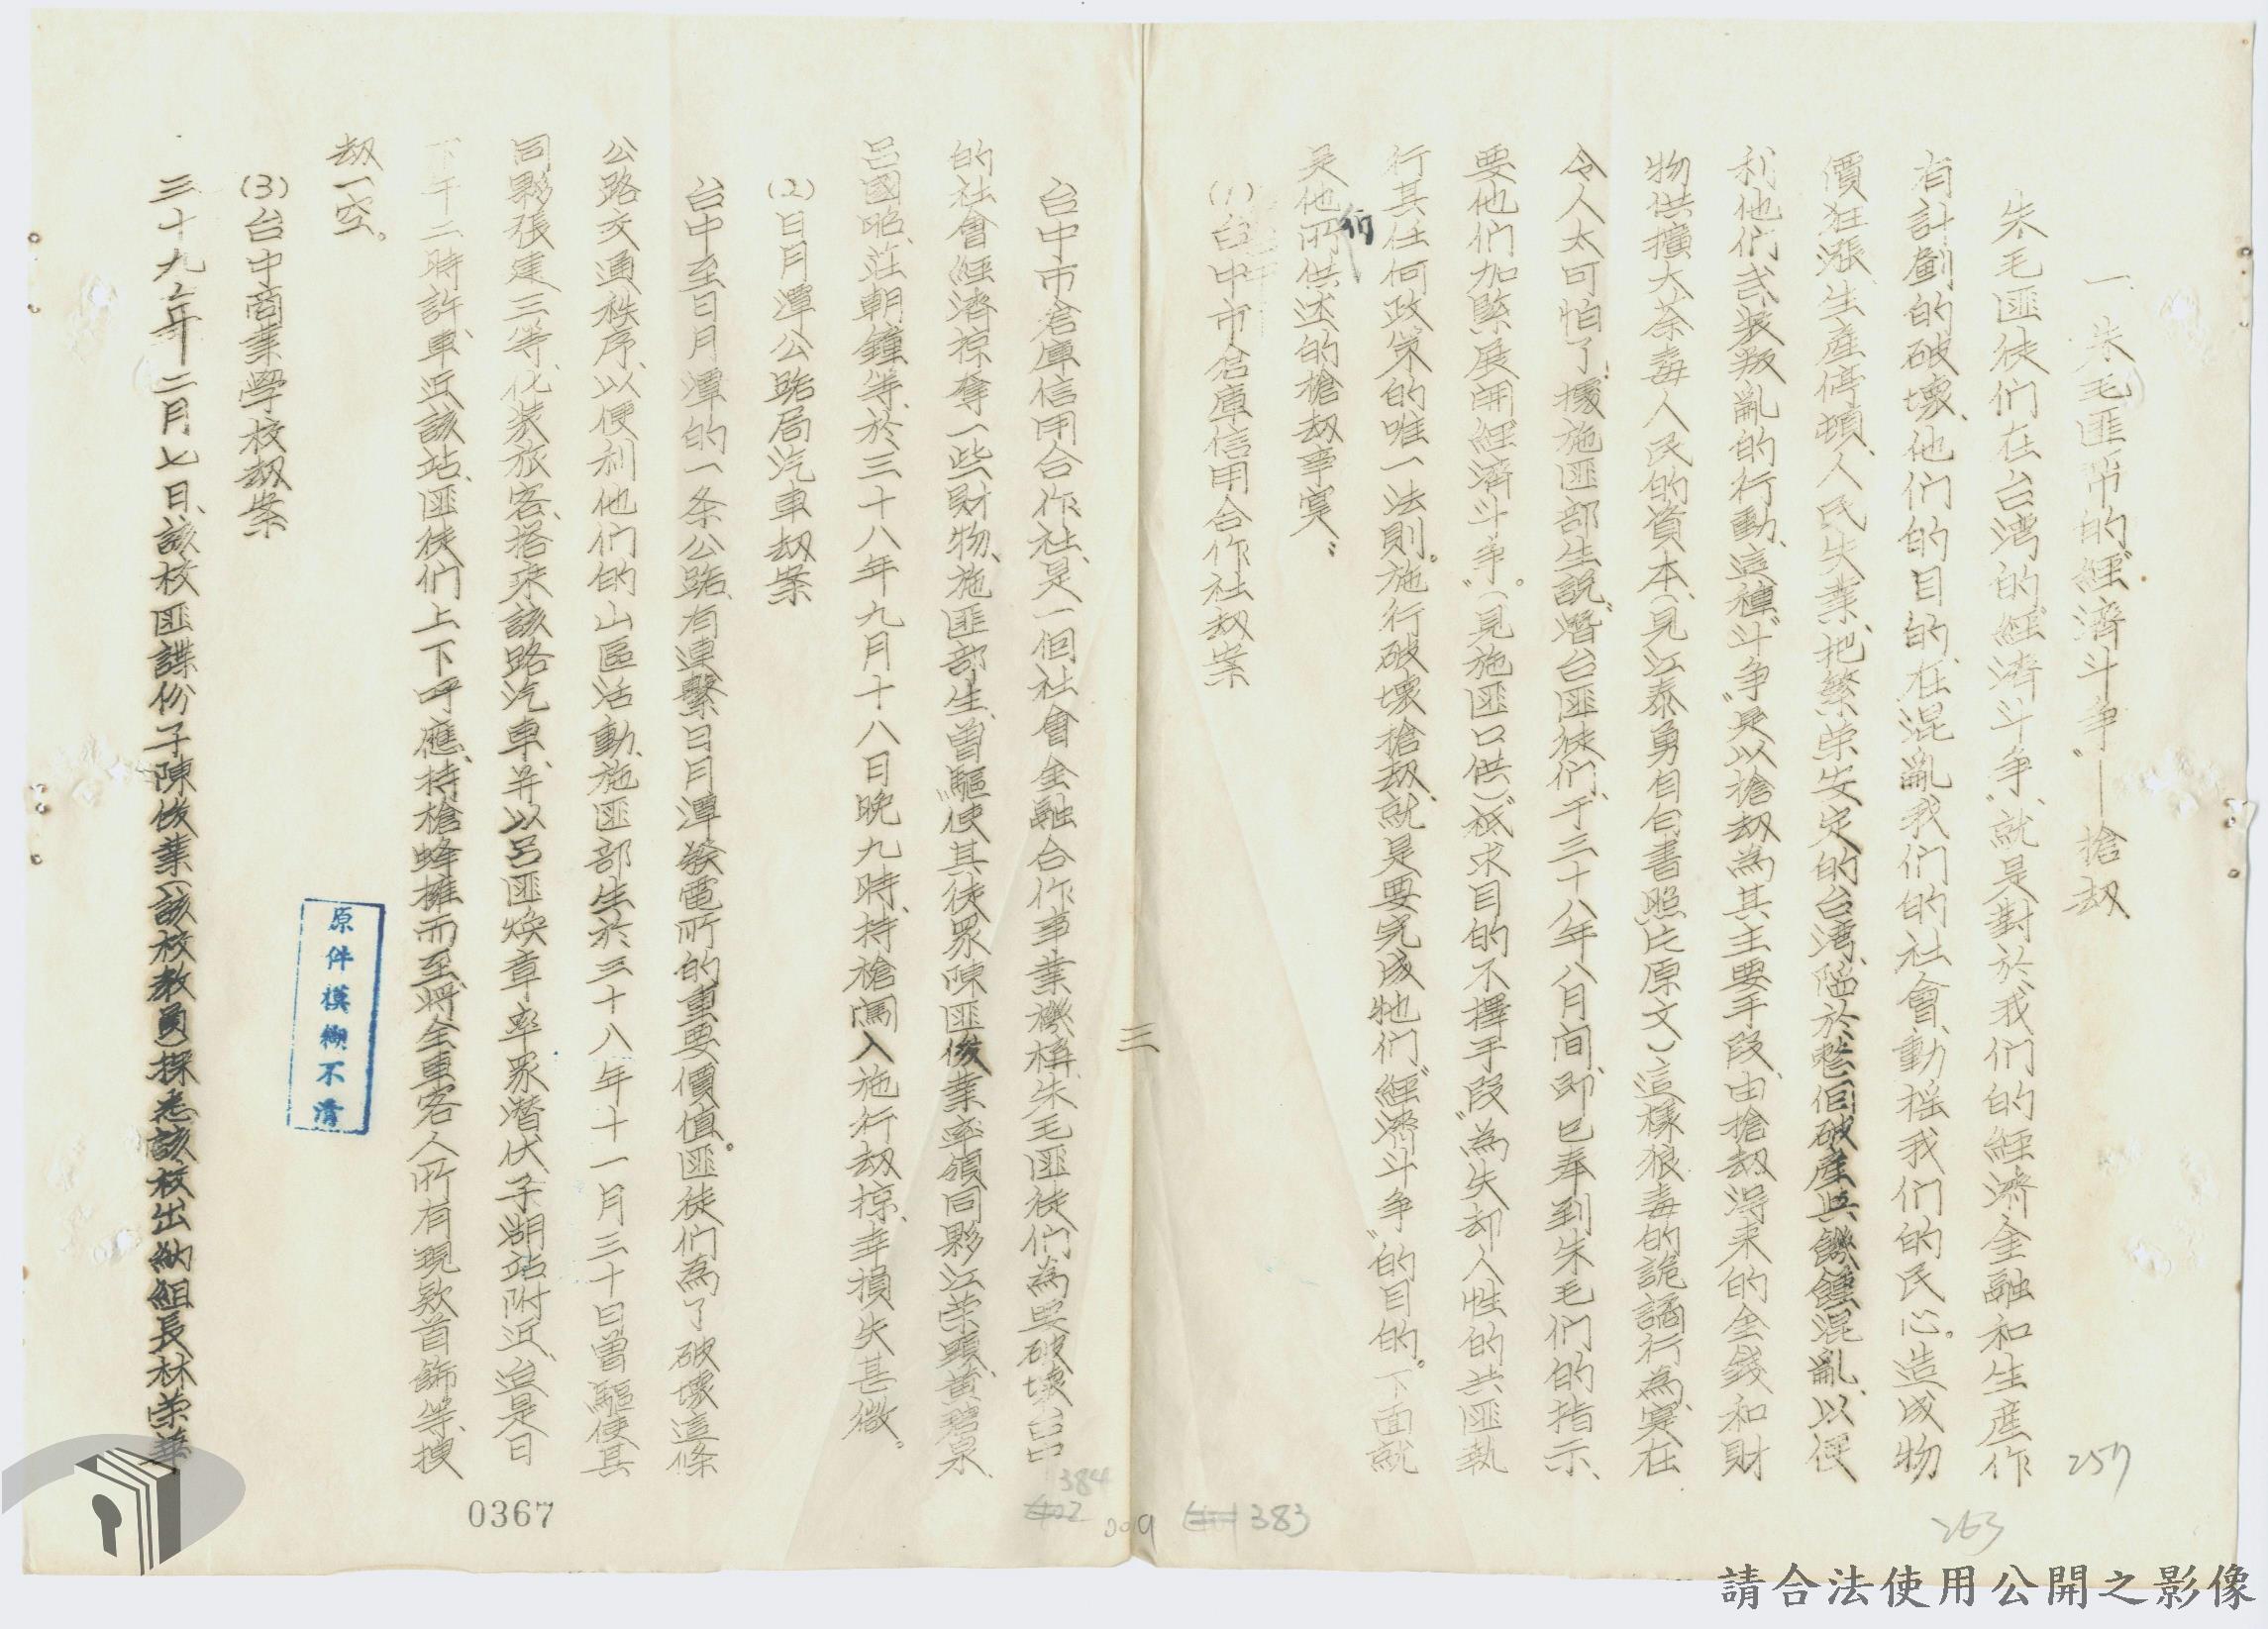 一、朱毛匪幫的“經濟斗争”——搶劫
朱毛匪徒們在台湾的“經濟斗争”、就是對於我們的經濟金融和生產作
有計劃的破壞、他們的目的、在混亂我們的社會、動摇我們的民心。造成物
價狂漲、生產停頓、人民失業、把繁荣安定的台湾、陷於整個破產與饑饉混亂、以便
利他們武裝叛亂的行動、這種“斗争”是以搶劫為其主要手段、由搶劫得来的金錢和財
物供擴大荼毒人民的資本（見江泰勇自白書照片原文）這樣狼毒的詭譎行為、寔在
令人太可怕了、據施匪部生説：“潛台匪徒們、于三十八年八月间、即已奉到朱毛們的指示、
要他們加緊展開經濟斗争。”（見施匪口供）“祇求目的不擇手段”為失却人性的共匪執
行其任何政策的唯一法則。施行破壞搶劫、就是要完成牠們“經濟斗争”的目的。下面就
是他們所供述的搶劫事寔：
(1)台中市倉庫信用合作社劫案
台中市倉庫信用合作社、是一個社會金融合作事業機構、朱毛匪徒們為要破壞台中
的社會經濟掠奪一些財物、施匪部生、曾驅使其徒眾陳匪俊業率領同夥江荣顯、黄碧泉、
吕國昭、莊朝鐘等、於三十八年九月十八日晚九時、持槍闖入施行劫掠、幸損失甚微。
(2)日月潭公路局汽車劫案
台中至日月潭的一条公路、有連繫日月潭發電所的重要價值。匪徒們為了破壞這條
公路交通秩序、以便利他們的山區活動、施匪部生於三十八年十一月三十日曾驅使其
同夥張建三等、化装旅客、搭乘該路汽車、并以吕匪焕章率眾潛伏子湖站附近、迨是日
下午二時許、車近該站、匪徒們上下呼應、持槍蜂擁而至、將全車客人所有現欵首飾等、搜
劫一空。
(3)台中商業學校劫案
三十九年二月七日、該校匪諜份子陳俊業（該校教員）探悉該校出納組長林荣華
三
原件模糊不清
257
263
383
009
384
0367
請合法使用公開之影像